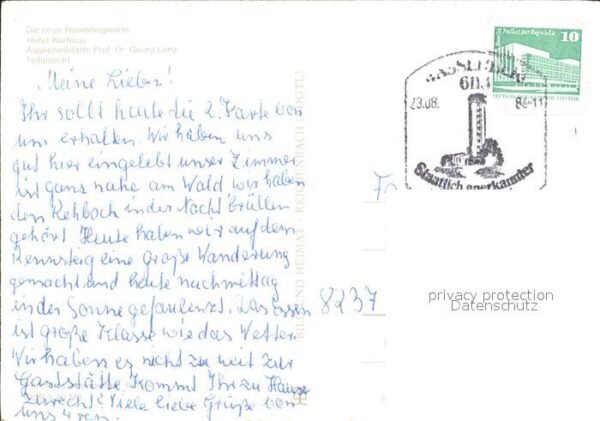 Die neue Rennsteigwarte
Hotel-Kurhaus
Augenheilstätte Prof. Dr. Georg Lenz
Teilansicht
Meine Lieben!
Ihr sollt heute die 2. Karte von
uns erhalten. Wir haben uns
gut hier eingelebt unser Zimmer
ist ganz nahe am Wald wir haben
den Rehboch in der Nacht brüllen
gehört Heute haben wir auf dem
Rennsteig eine große Wanderung
gemacht und heute nachmittag
in der Sonne gefaulenzt. Das Essen
ist große Klasse wie das Wetter.
Wir haben es nicht zu weit zur
Gaststätte Kommt Ihr zu Hause
zurecht? Viele liebe Grüße von
uns
BILD UND HEIMAT REICHENBACH (VOGTL)
Berlin, Palast der Republik
10
6113
23.08.
84-11
Staatlich anerkannter
Fa
8237
privacy protection
Datenschutz